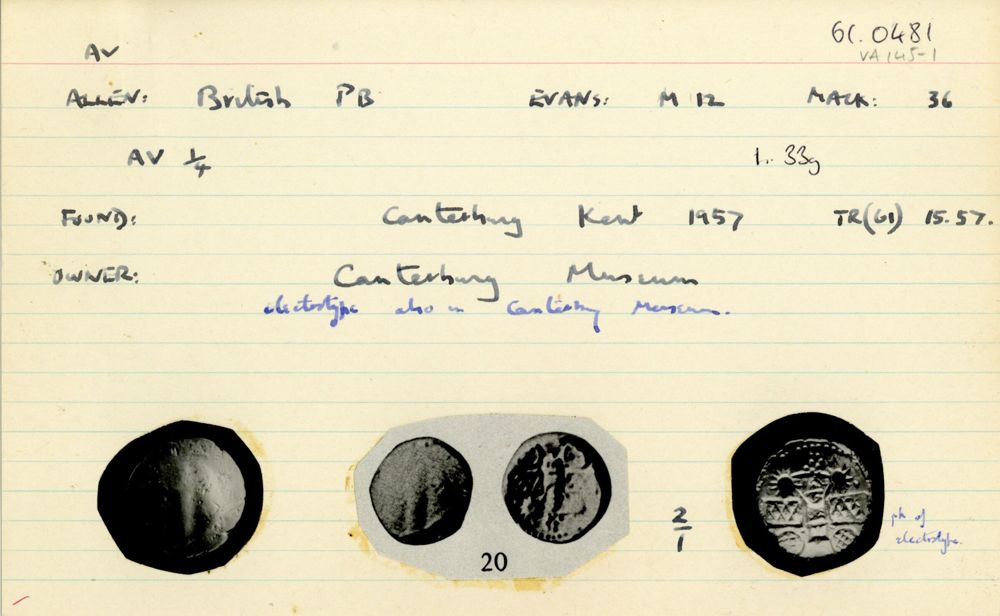 61.0481
AV
VA 145-1
ALLEN: British PB EVANS: M 12 MACK: 36
AV 1/4 1.33g
FOUND: Canterbury Kent 1957 TR(61) 15.57.
OWNER: Canterbury Museum
electrotype also in Canterbury Museum.
2/1
ph of
electrotype.
20